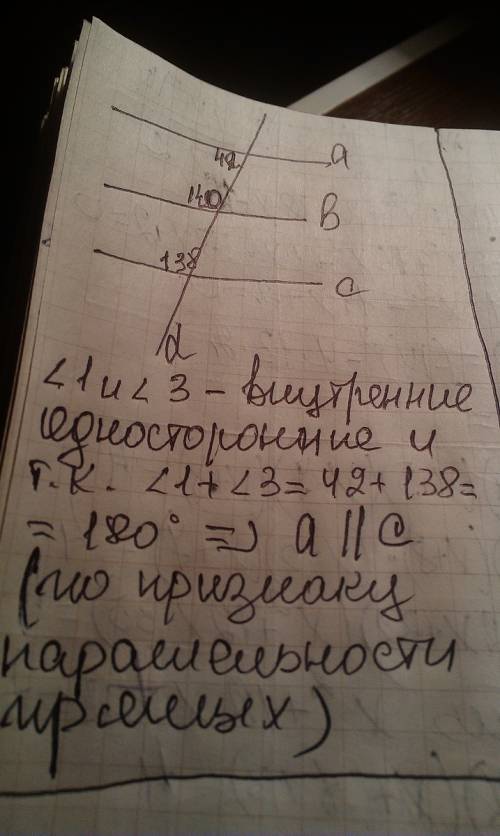 42
a
140
b
138
c
d
∠1 и ∠3 - внутренние
односторонние и
т.к. ∠1+∠3=42+138=
=180° => a || c
(по признаку
параллельности
прямых)